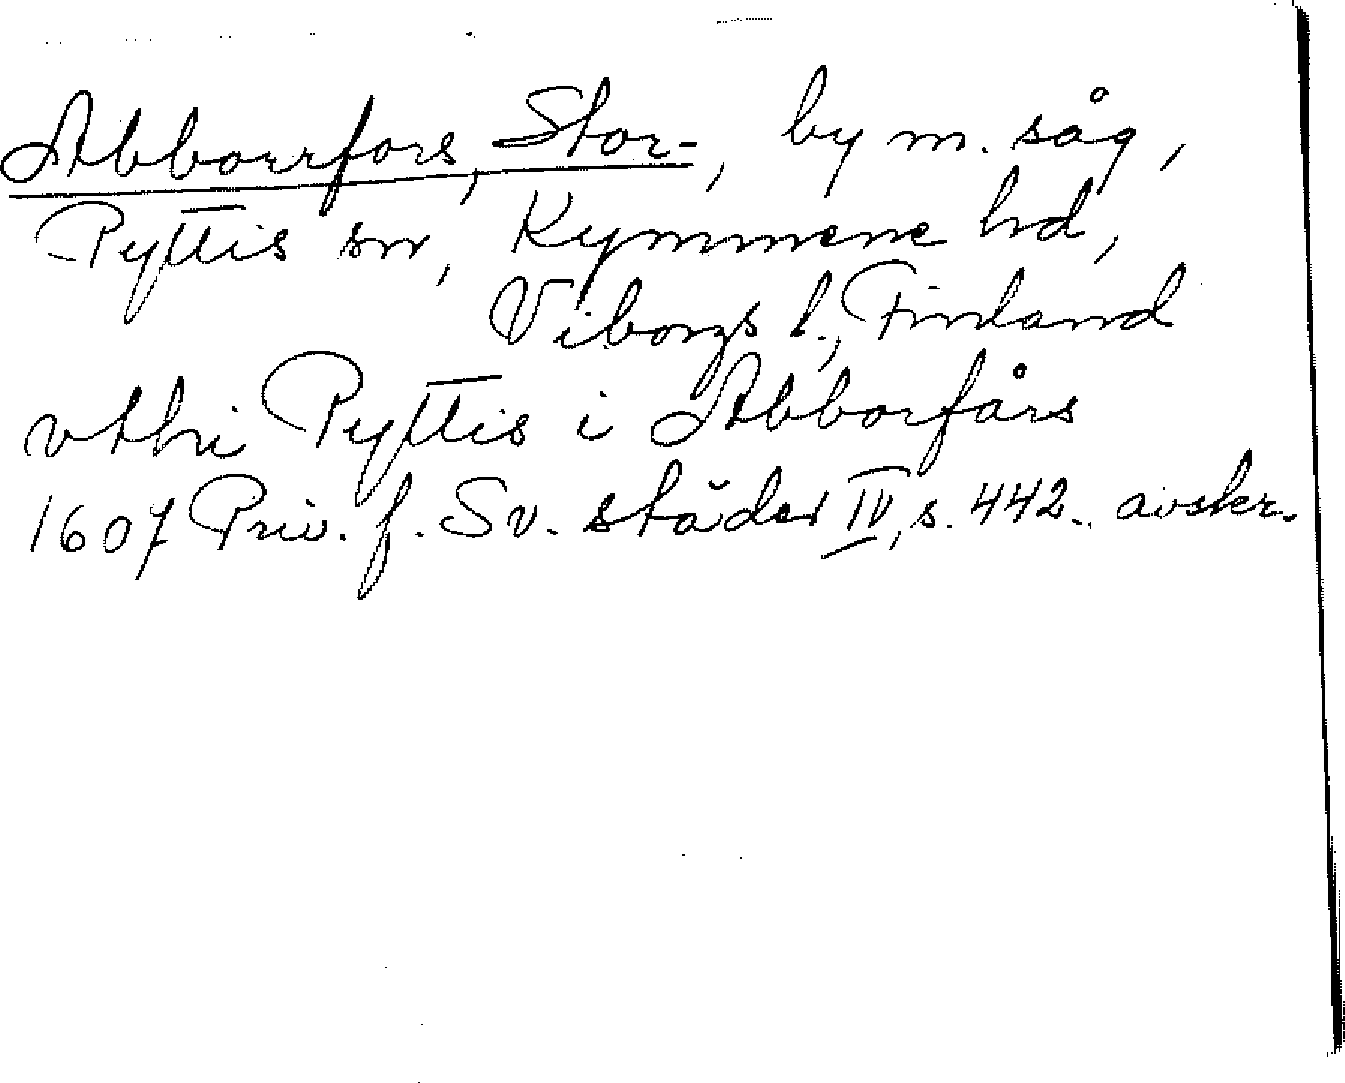 Abborrfors, Stor-, by m. såg,
Pyttis sn, Kymmene hd,
Viborgs l., Finland
vthi Pyttis i Abborfårs
1607 Priv. f. Sv. städer IV, s. 442. avskr.